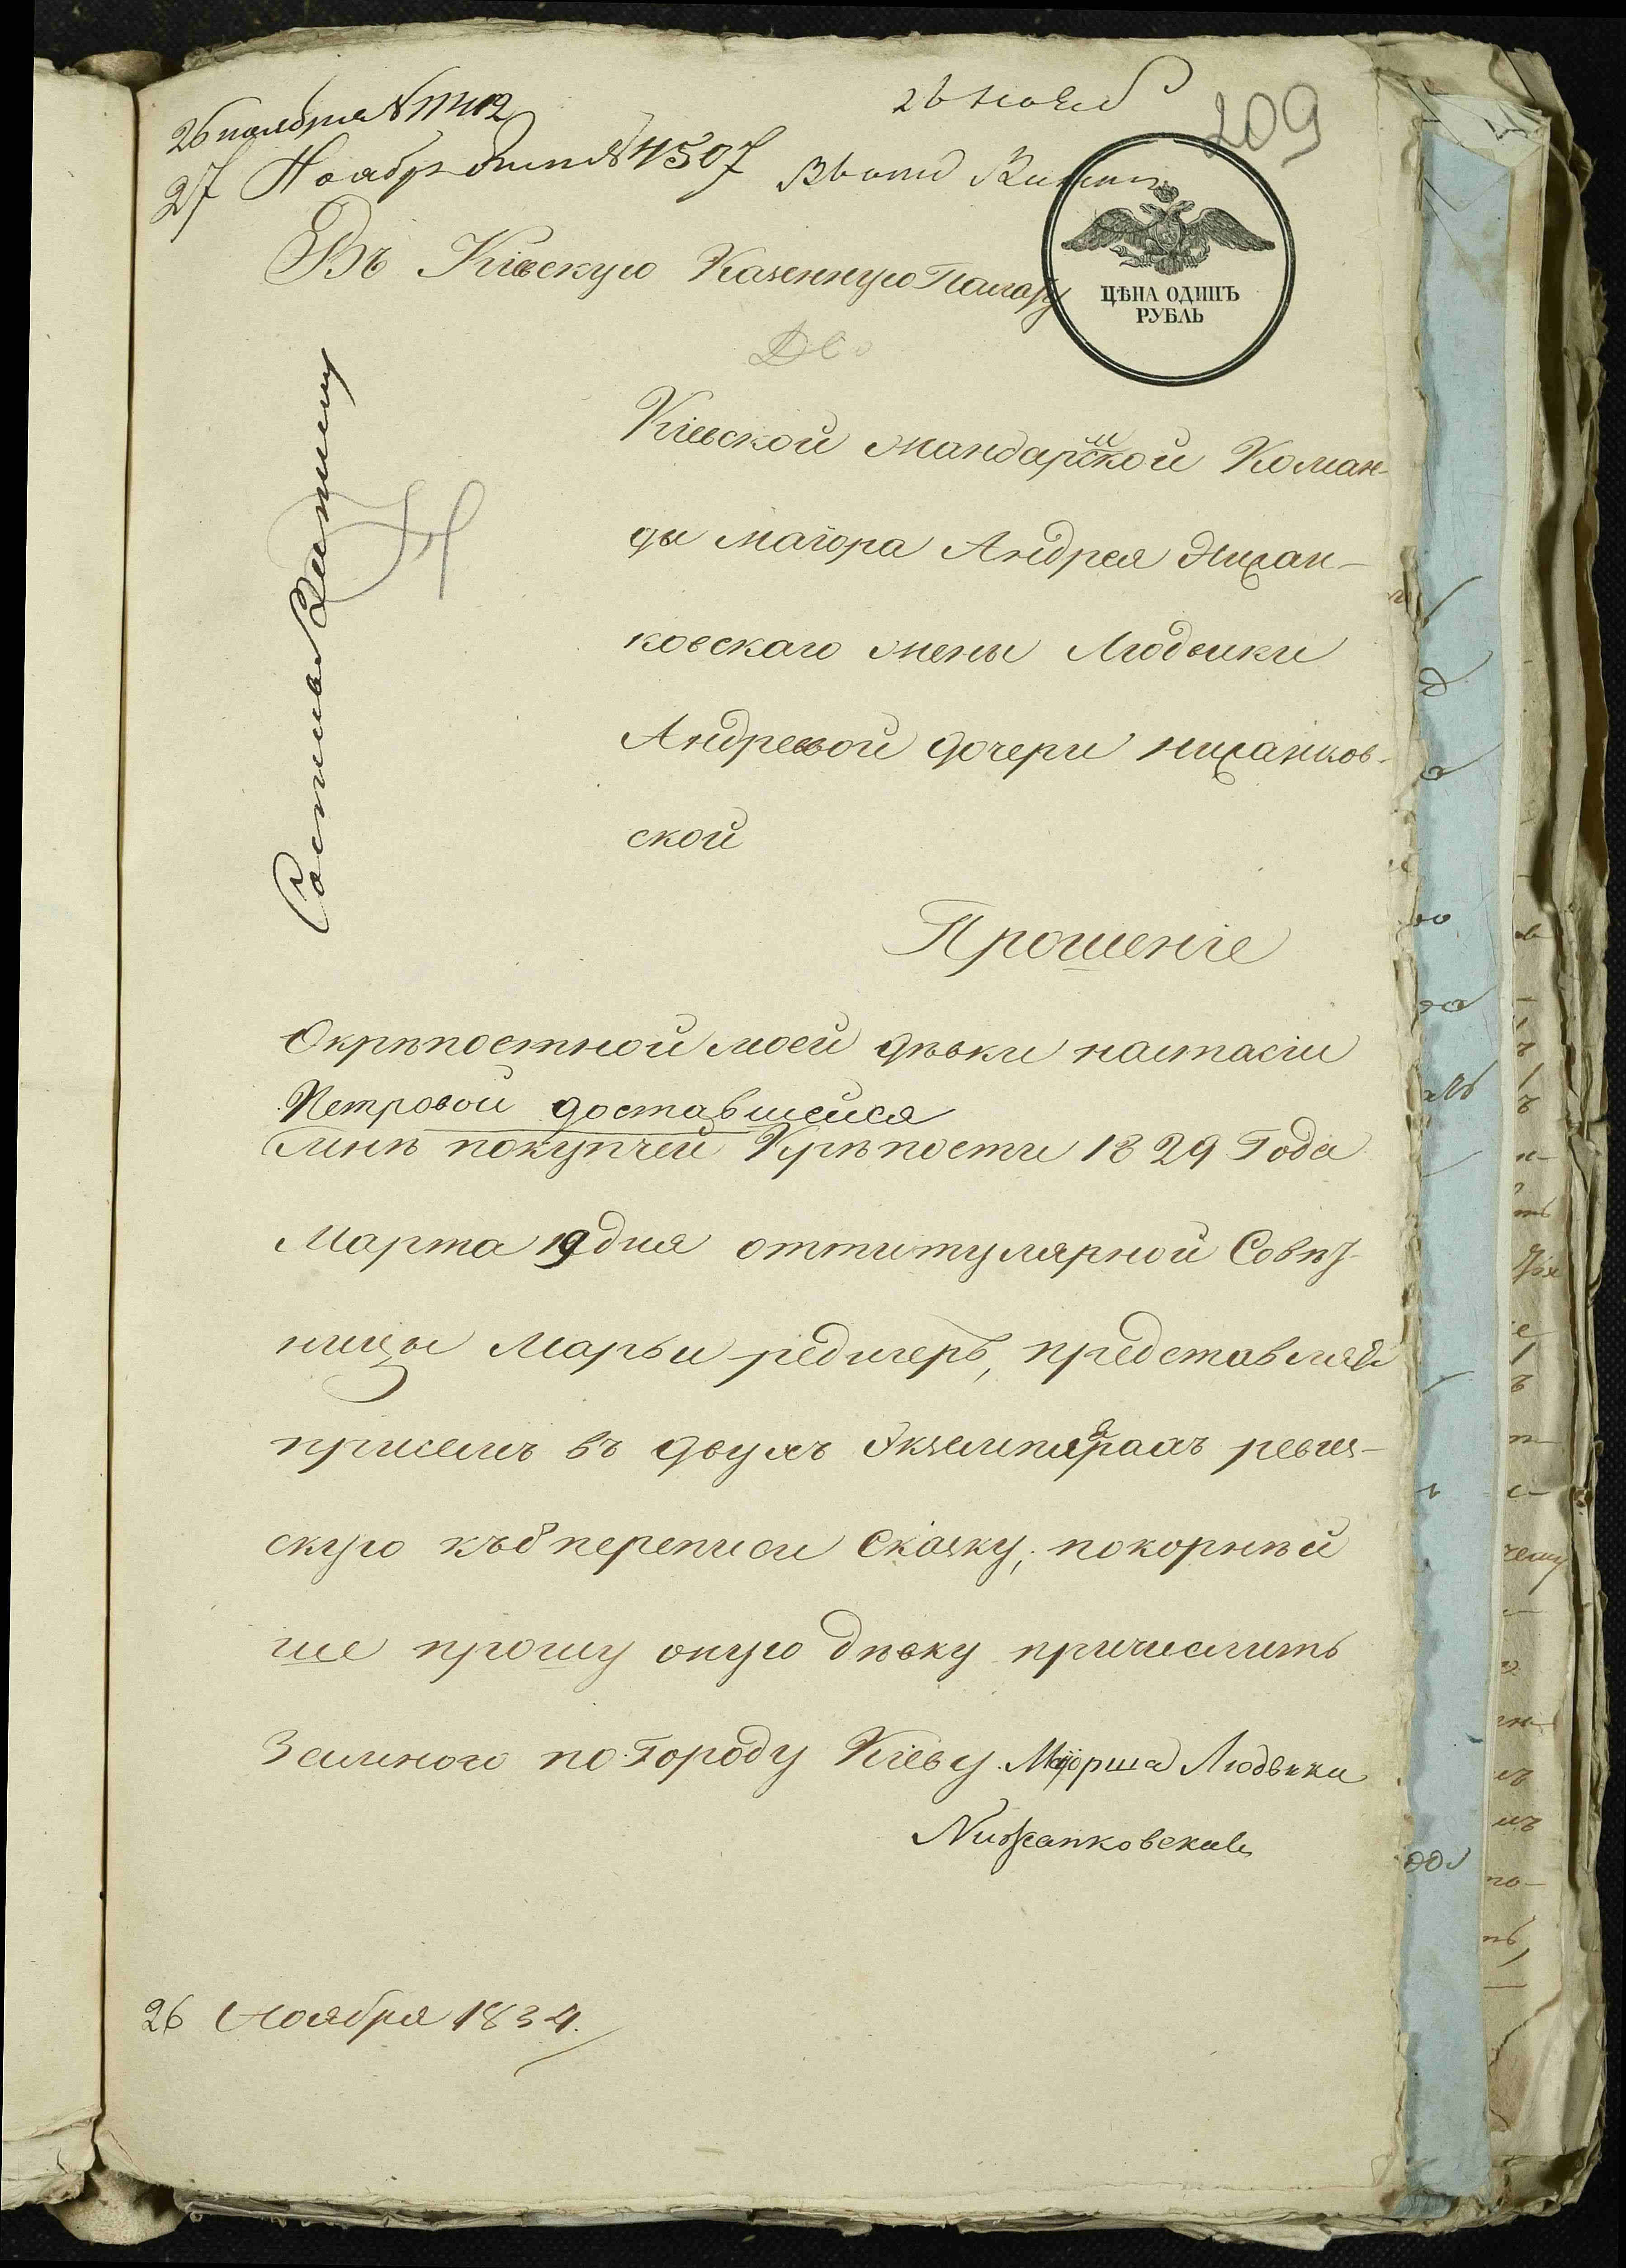 26 ноября № 11412
27 Ноябр № 4507
26 Нояб
209
Въ Кіевскую Казенную Палату
ЦѢНА ОДИНЪ
РУБЛЬ
Кіевской жандармской Коман-
ды маіора Андрея Нижан-
ковскаго жены Людвики
Андреевой дочери нижанков-
ской
Прошеніе
Окрѣпостной моей дѣвки настасіи
Петровой доставшейся
мнѣ покупчей Крѣпости 1829 Года
Марта 19 дня оттитулярной Совѣт-
ницы Марьи редигеръ, представляя
присемъ въ двухъ Экземплярахъ ревиз-
скую къ 8 переписи Сказку, покорнѣй
ше прошу оную дѣвку причислить
Замною по Городу Кіеву. Маіорша Людвика
Нижанковская
26 Ноября 1834.